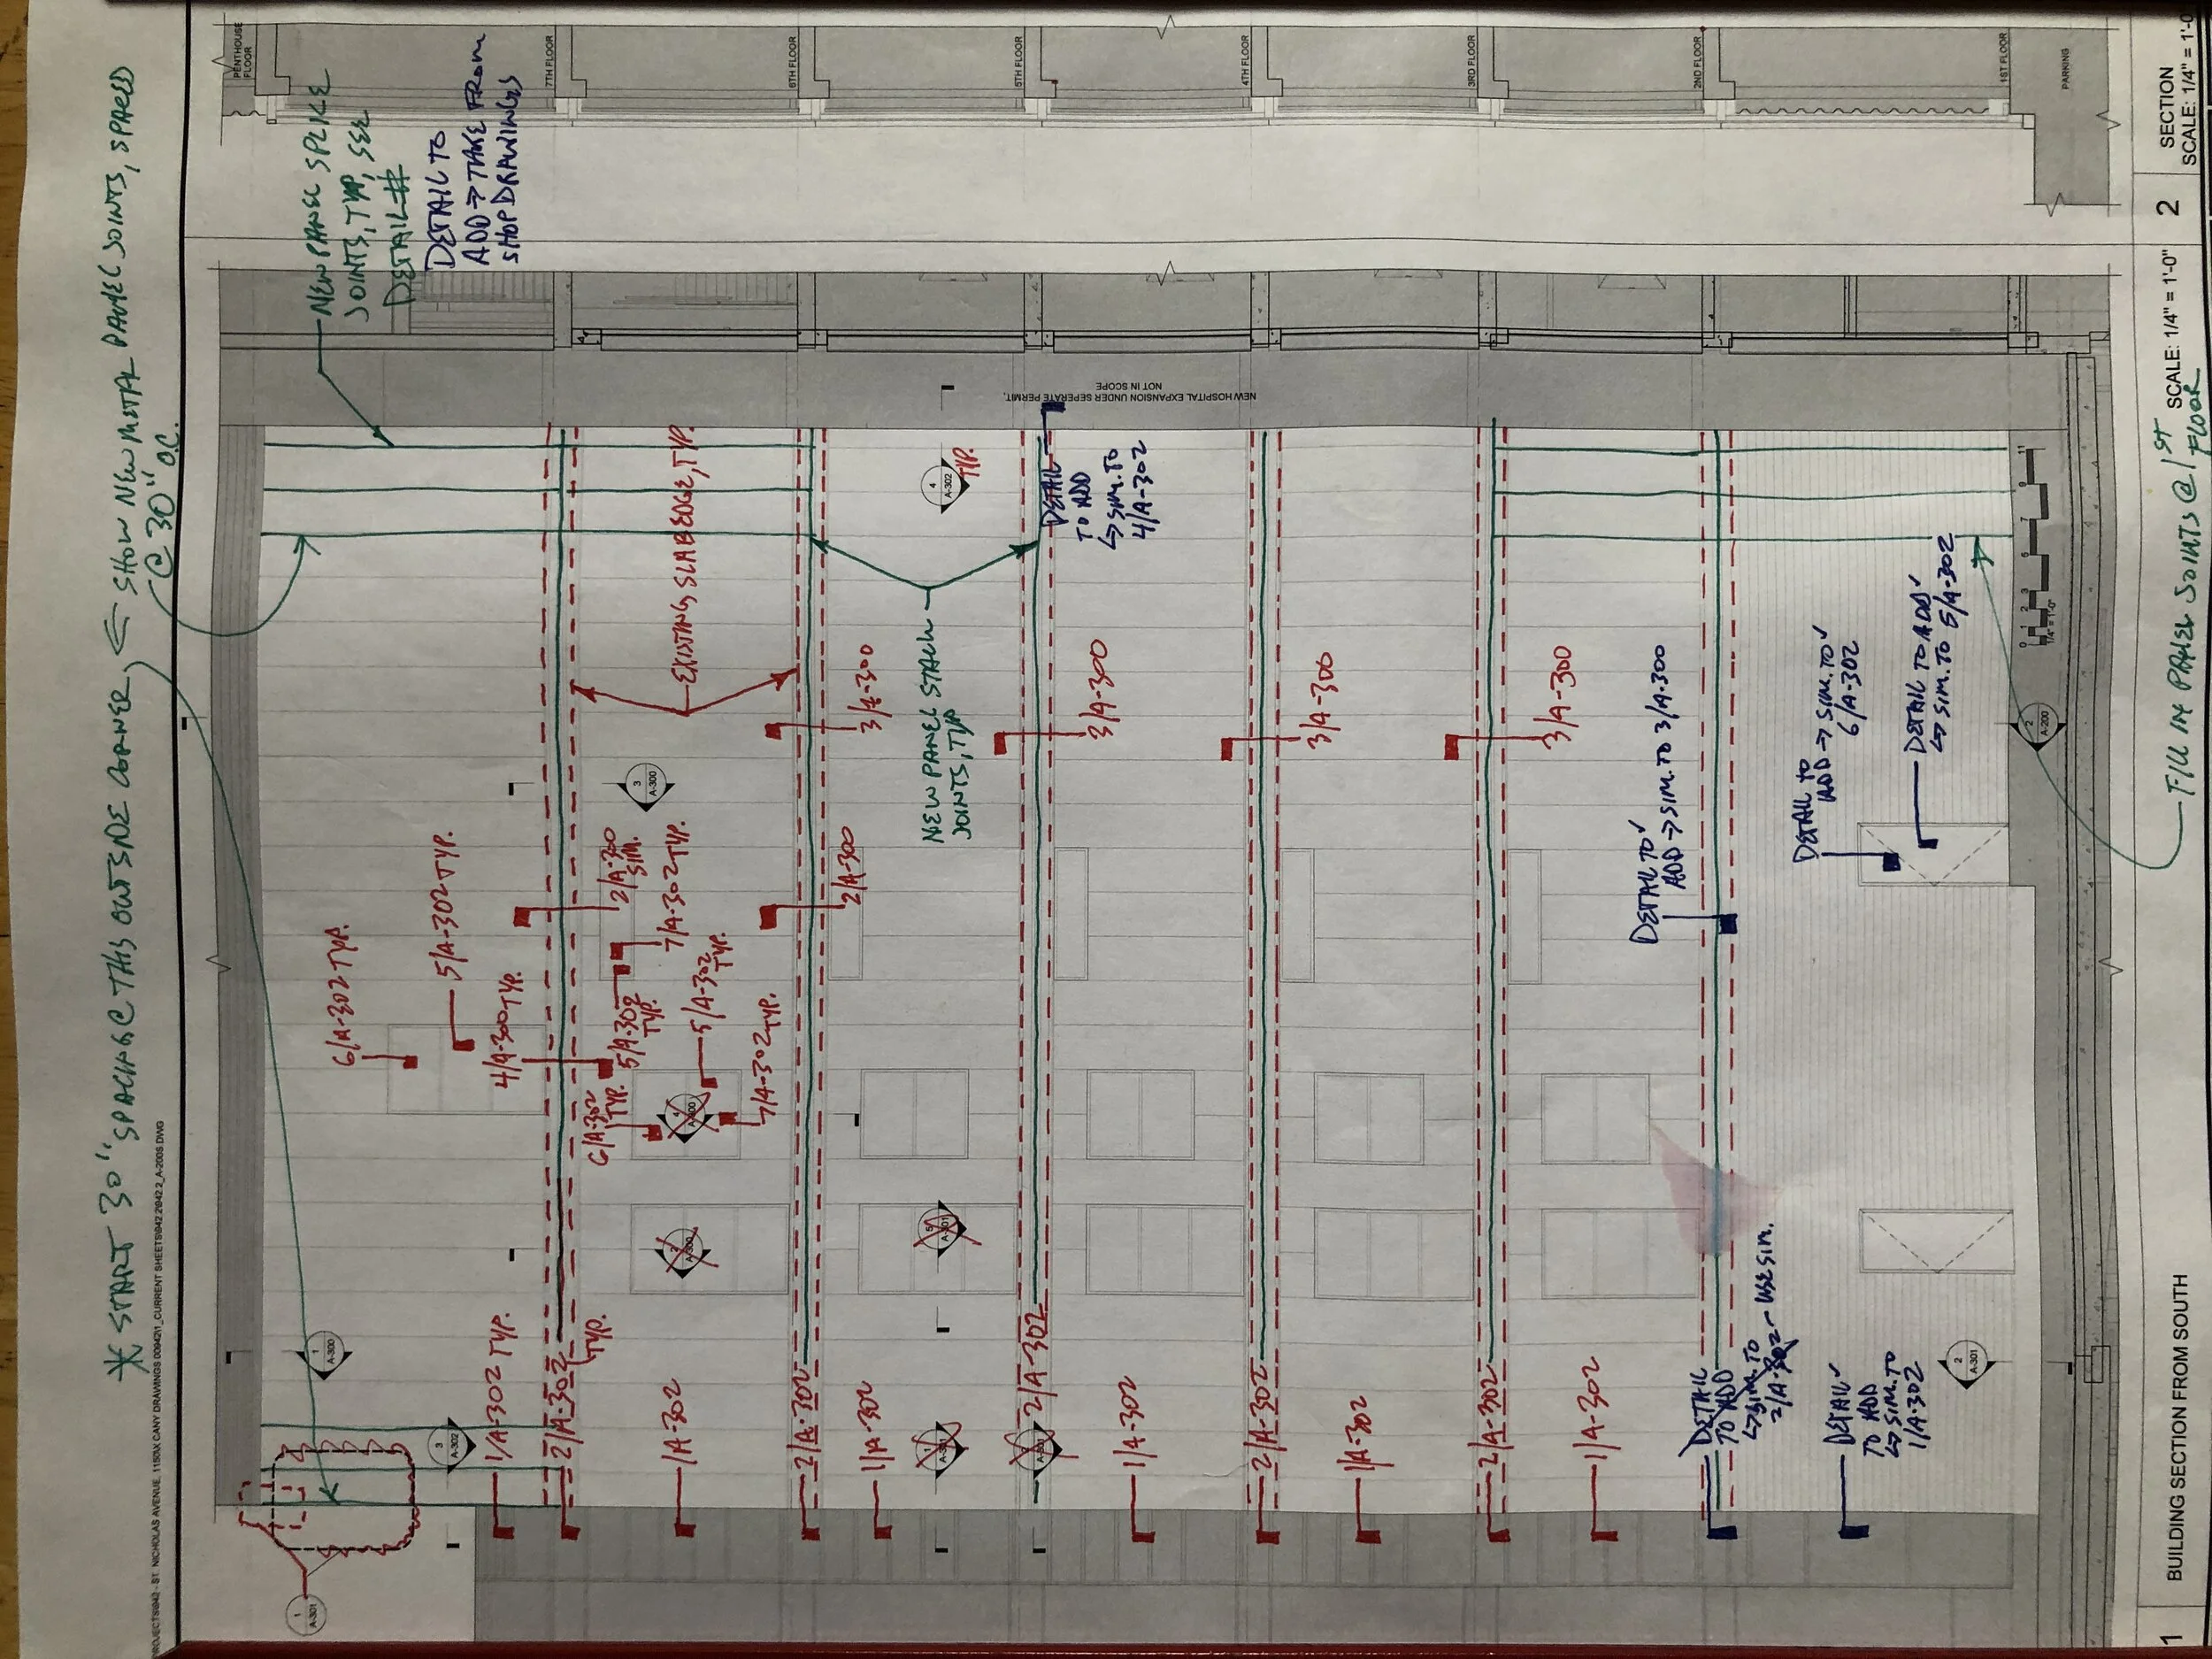 * START 30" SPACING @ THIS OUTSIDE CORNER, ← SHOW NEW METAL PANEL JOINTS, SPACED
@ 30" O.C.
NEW PANEL SPLICE
JOINTS, TYP, SEE
DETAIL #
DETAIL TO
ADD → TAKE FROM
SHOP DRAWINGS
PENTHOUSE
FLOOR
7TH FLOOR
6TH FLOOR
5TH FLOOR
4TH FLOOR
3RD FLOOR
2ND FLOOR
1ST FLOOR
PARKING
NEW HOSPITAL EXPANSION UNDER SEPERATE PERMIT,
NOT IN SCOPE
1
A-301
1
A-300
3
A-302
6/A-302 TYP.
5/A-302 TYP.
4/A-300 TYP.
1/A-302 TYP.
2/A-302
TYP.
2/A-300
SIM.
7/A-302 TYP.
5/A-302
TYP.
5/A-302
TYP.
6/A-302
TYP.
7/A-302 TYP.
3
A-300
EXISTING SLAB EDGE, TYP.
1/A-302
2/A-302
2/A-300
3/A-300
1/A-302
NEW PANEL STACK
JOINTS, TYP
4
A-302
TYP.
2/A-302
DETAIL
TO ADD
↳ SIM. TO
4/A-302
3/A-300
1/A-302
2/A-302
3/A-300
1/A-302
2/A-302
3/A-300
1/A-302
DETAIL TO ✓
ADD → SIM. TO 3/A-300
DETAIL
TO ADD
↳ SIM. TO
2/A-302 - USE SIM.
DETAIL TO
ADD → SIM. TO ✓
6/A-302
DETAIL TO ADD ✓
↳ SIM. TO 5/A-302
DETAIL ✓
TO ADD
↳ SIM. TO
1/A-302
2
A-301
2
A-200
0 1 2 3 5 7 9 11
1/4" = 1'-0"
FILL IN PANEL JOINTS @ 1ST
FLOOR
1
BUILDING SECTION FROM SOUTH
SCALE: 1/4" = 1'-0"
2
SECTION
SCALE: 1/4" = 1'-0"